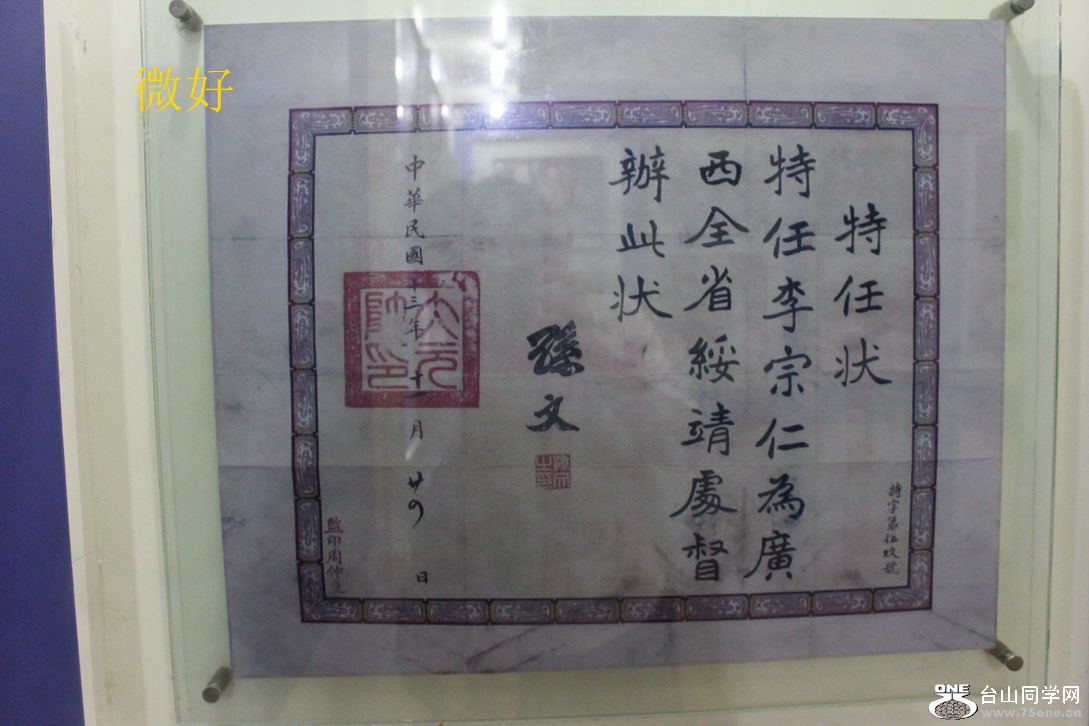 微好
特任状
特任李宗仁為廣
西全省綏靖處督
辦此状
孫文
中華民國十三年十一月廿四日
大元帥印
特字第伍玖號
監印周仲良
ONE 台山同学网
www.75one.cn